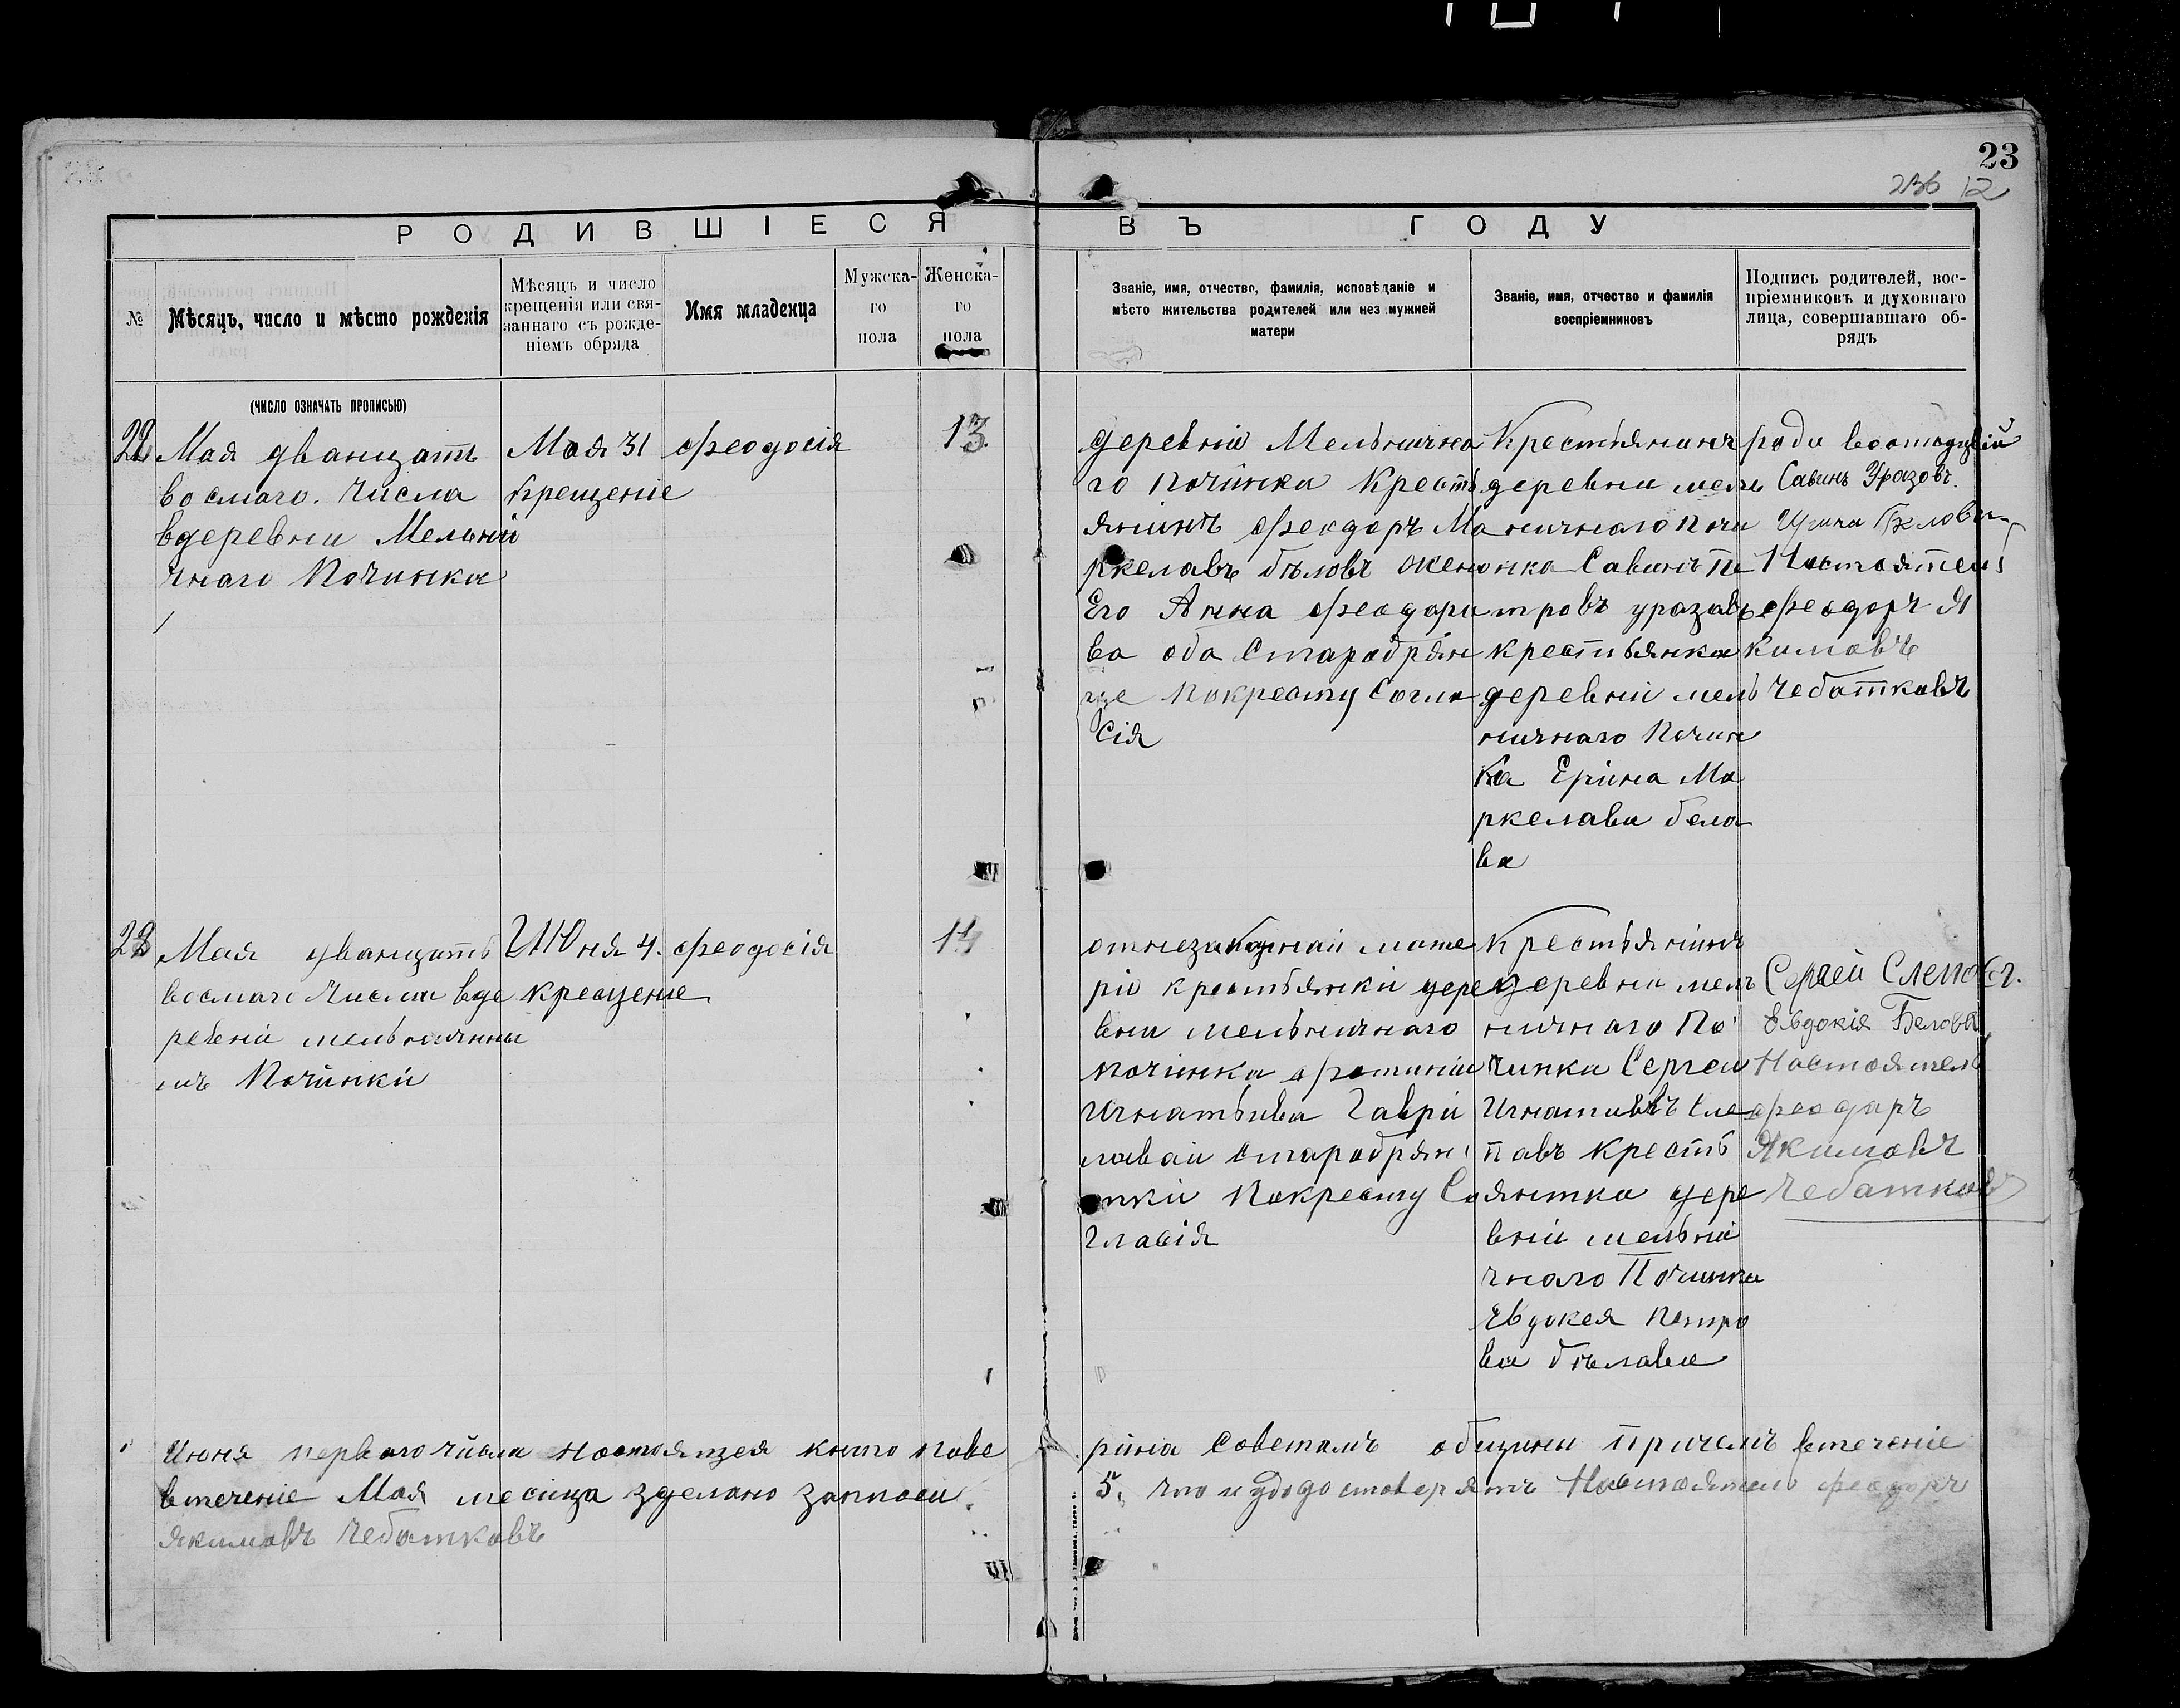 23
236 12
РОДИВШІЕСЯ ВЪ ГОДУ
№
Мѣсяцъ, число и мѣсто рожденія
Мѣсяцъ и число
крещенія или свя-
заннаго съ рожде-
ніемъ обряда
Имя младенца
Мужска-
го
пола
Женска-
го
пола
Званіе, имя, отчество, фамилія, исповѣданіе и
мѣсто жительства родителей или незамужней
матери
Званіе, имя, отчество и фамилія
воспріемниковъ
Подпись родителей, вос-
пріемниковъ и духовнаго
лица, совершавшаго об-
рядъ
(ЧИСЛО ОЗНАЧАТЬ ПРОПИСЬЮ)
22
Мая дванцать
восмаго. Числа
вдеревни Мельни
чнаго Починка
Мая 31
Крещеніе
феодосія
13.
деревніи Мельнично
го починка Кресть
янинъ феодоръ Ма
ркелавъ бѣловъ жена
Его Анна феодори
ва оба Старобрян
це Покресту Согла
сія
Крестьянинъ
деревни мель
ничнаго почи
нка Савинъ Пе
тровъ уразавъ
крестьянка
деревніи мель
ничнаго Почин
ка Ерина Ма
ркелава бела
ва
Савинъ Уразовъ.
Настоятель
феодоръ Я
кимовъ
Чебатковъ
23
Мая дванцать
восмаго Числа вде
ревніи мельничны
мъ Починки
Июня 4.
крещение
феодосія
14
отнезаконнай мате
ріи крестьянки дере
вни мельничнаго
починка фотиніи
Игнатьива Гаври
лавай старобрян
тки Покресту Со
гласія
Крестьянинъ
деревни мель
ничнаго По
чинка Сергей
Игнативъ Сле
павъ кресть
янтка дере
вніи мельни
чнаго Починка
Евдокея Петро
ва бѣлава
Сергей Слеповъ.
Евдокія Белова
Настоятель
феодаръ
Якимовъ
Чебатковъ
Июня перваго числа настоящея книго пове
рина Советамъ общины Причемъ втечение
втечение Мая месица зделано записи
5. что и удодостоверятъ Настоятель феодоръ
якимовъ Чебатковъ